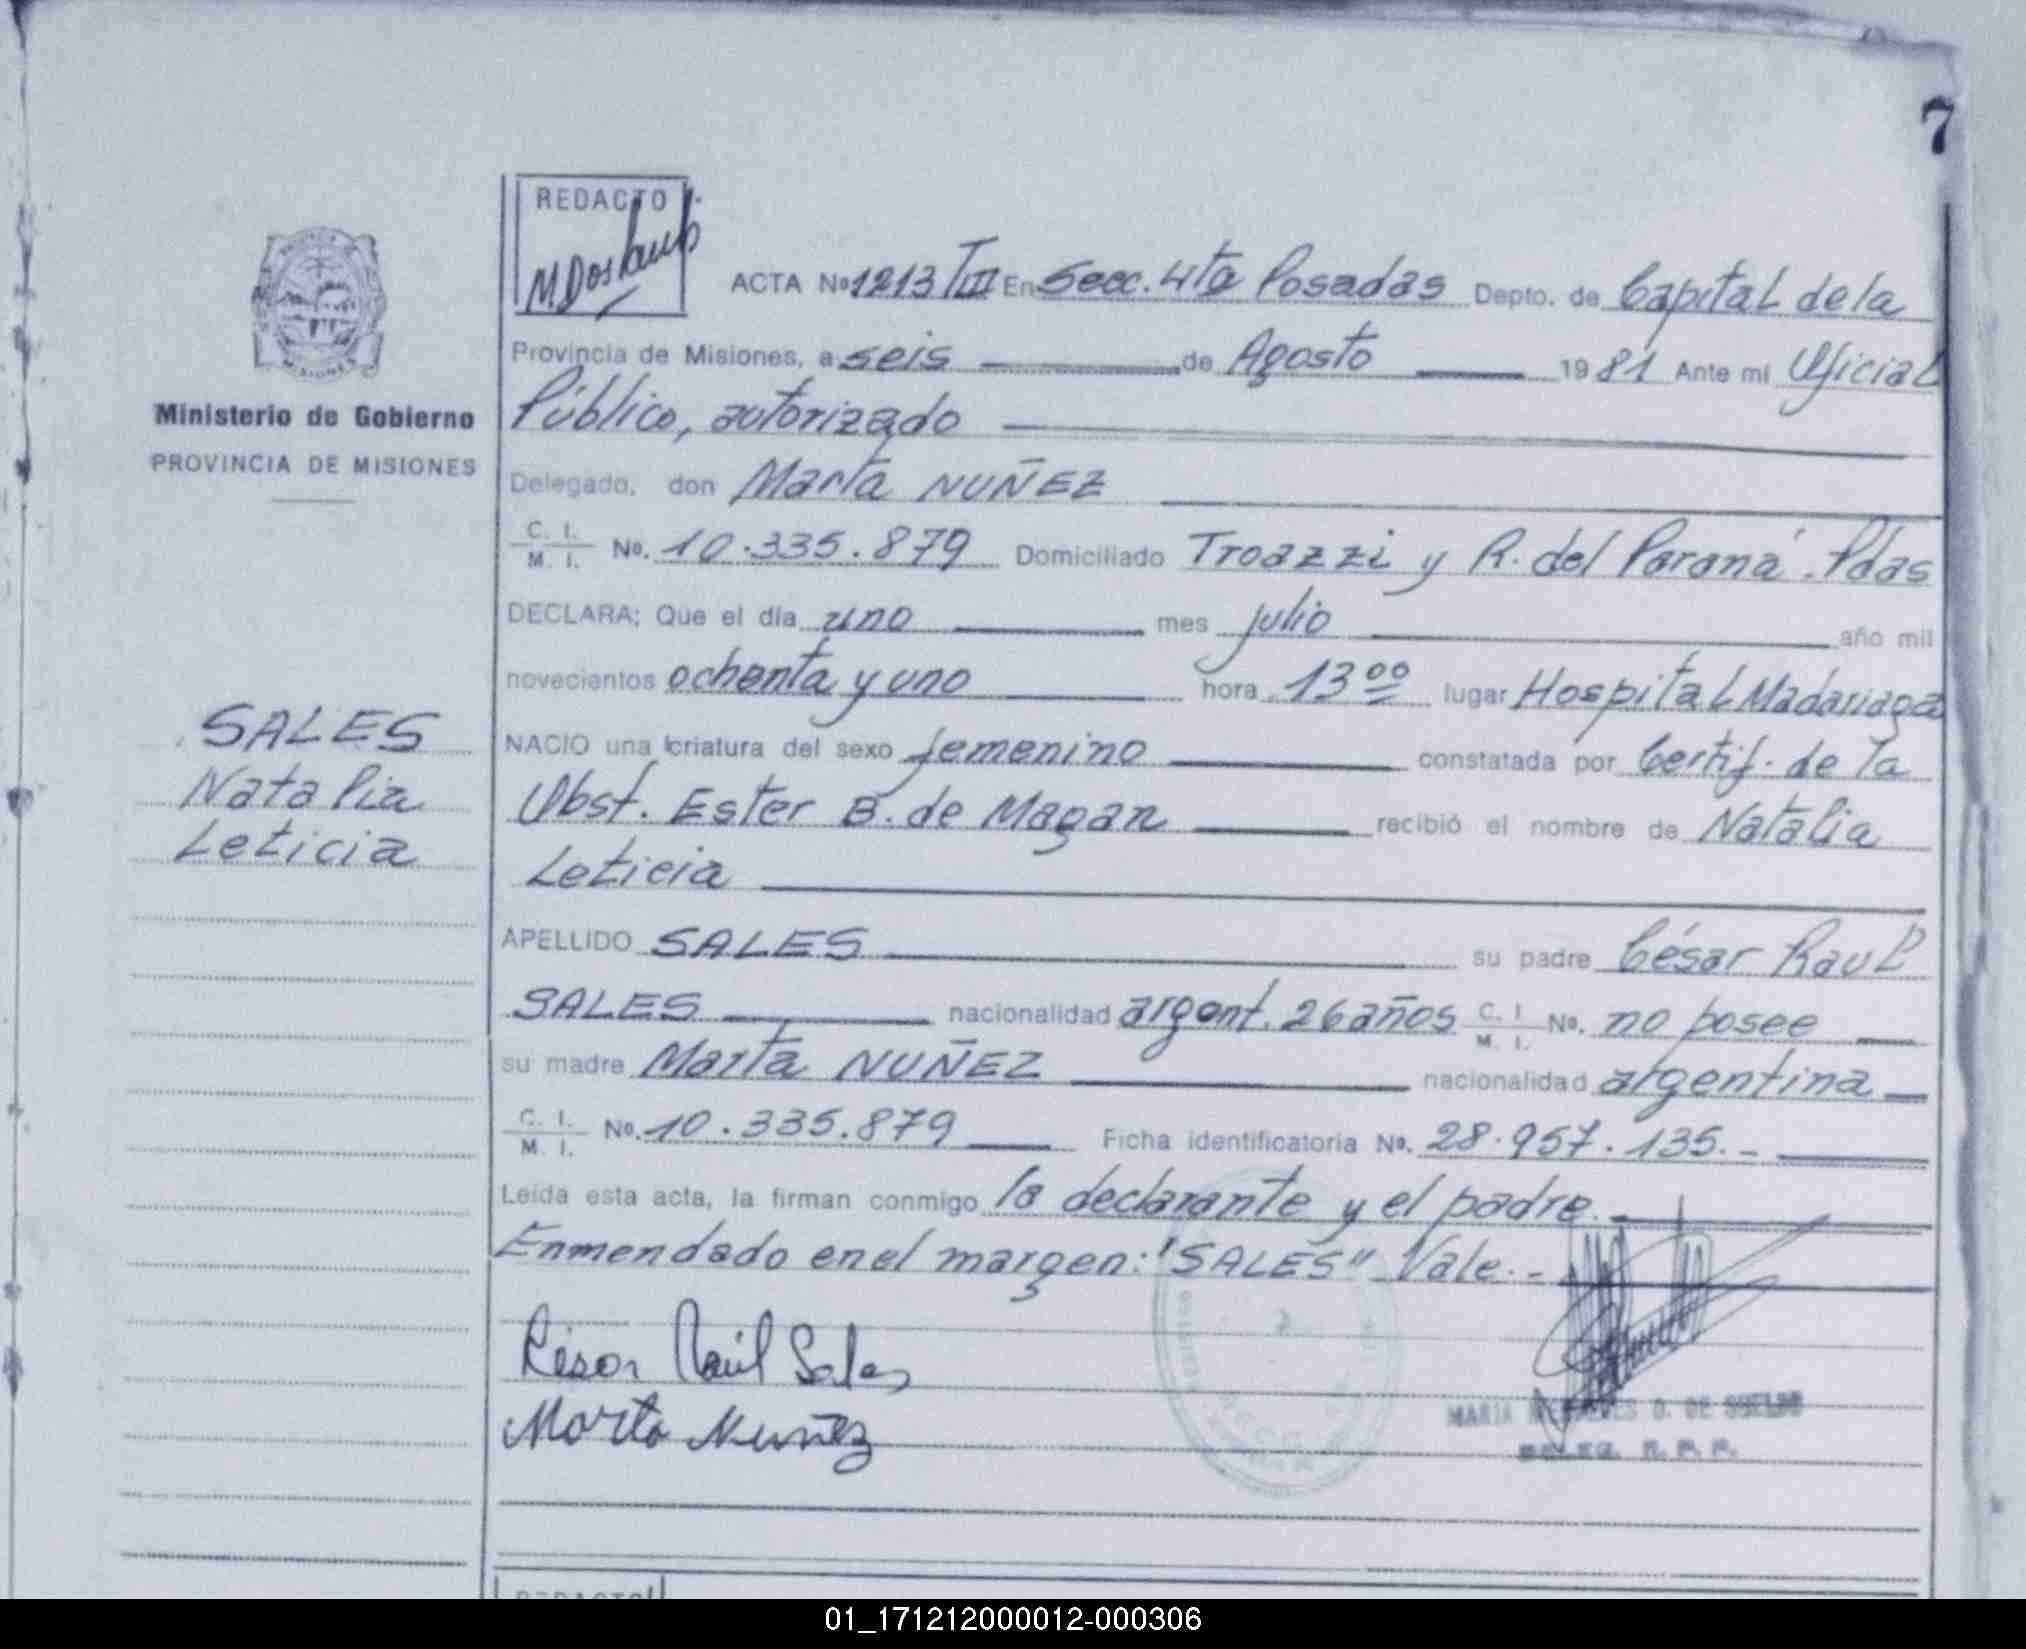 7
REDACTO
ACTA Nº 1213 TIII En Secc. 4ta Posadas Depto. de Capital de la
Provincia de Misiones, a seis de Agosto 1981 Ante mi Oficial
Público, autorizado
Ministerio de Gobierno
PROVINCIA DE MISIONES
Delegado, don Marta NUÑEZ
C. I.
M. I. Nº. 10.335.879 Domiciliado Troazzi y R. del Paraná. Pdas
DECLARA; Que el día uno mes julio año mil
novecientos ochenta y uno hora 13 00 lugar Hospital Madariaga
SALES
Natalia
Leticia
NACIO una criatura del sexo femenino constatada por Certif. de la
Obst. Ester B. de Magan recibió el nombre de Natalia
Leticia
APELLIDO SALES su padre César Raul
SALES nacionalidad argent. 26 años C. I. M. I. Nº. no posee
su madre Marta NUÑEZ nacionalidad argentina
C. I.
M. I. Nº. 10.335.879 Ficha identificatoria Nº. 28.957.135.-
Leída esta acta, la firman conmigo la declarante y el padre.
Enmendado en el margen: "SALES" Vale.-
César Raúl Sales
Marta Nuñez
MARIA D. DE SUELDO
R. P. P.
REDACTO
01_171212000012-000306